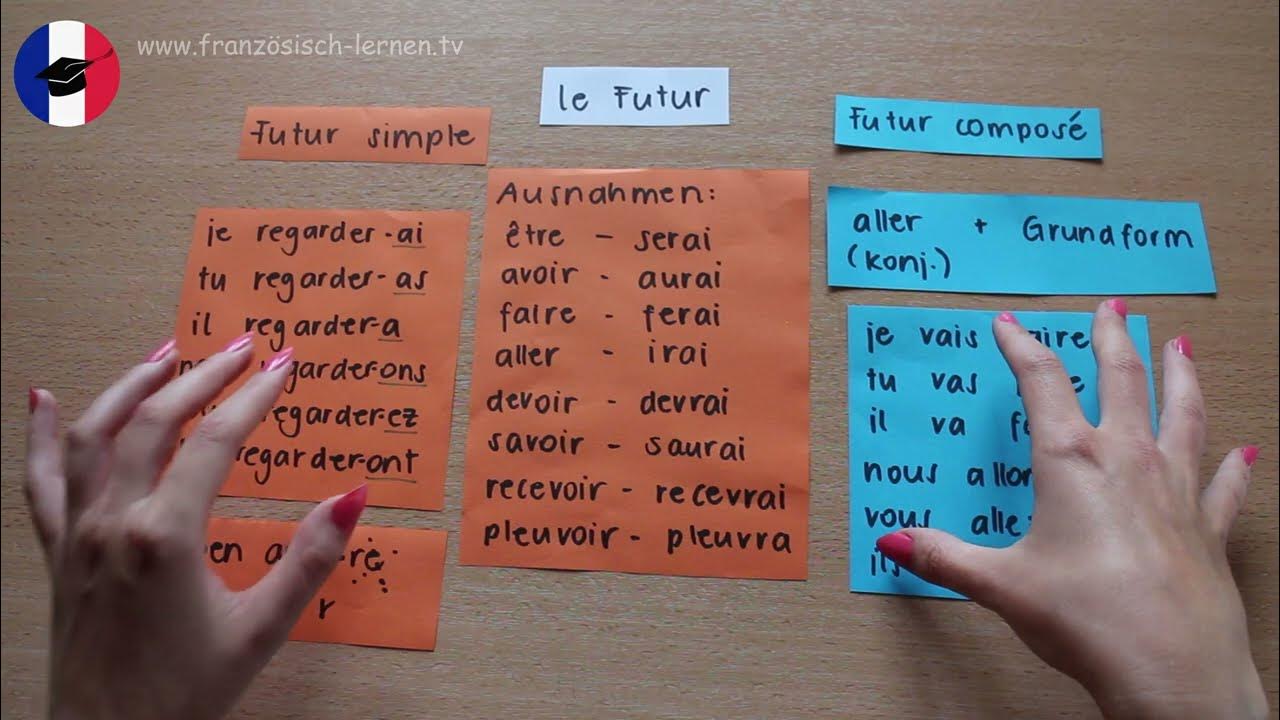 www.französisch-lernen.tv
le Futur
Futur simple
je regarder-ai
tu regarder-as
il regarder-a
regarder-ons
regarder-ez
regarder-ont
re
r
Ausnahmen:
être - serai
avoir - aurai
faire - ferai
aller - irai
devoir - devrai
savoir - saurai
recevoir - recevrai
pleuvoir - pleuvra
Futur composé
aller + Grundform
(konj.)
je vais faire
tu vas
il va
nous
vous
ils